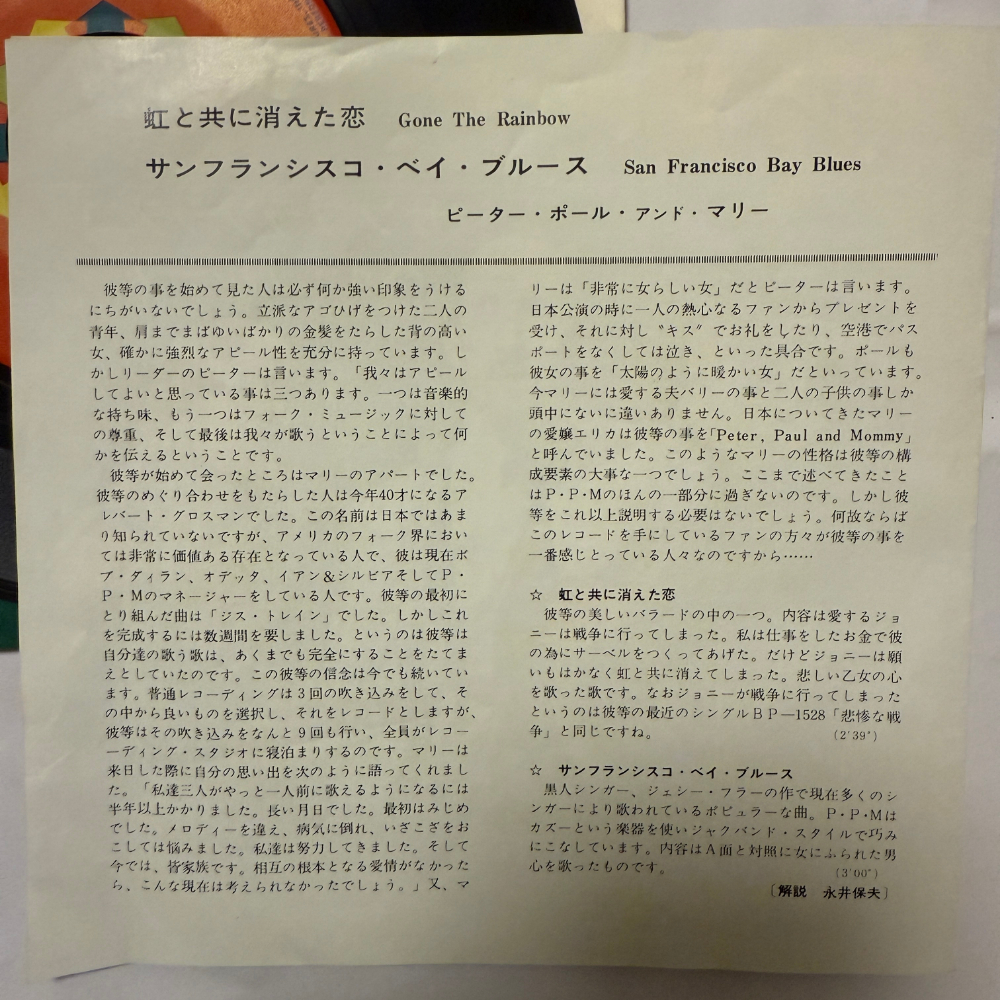 虹と共に消えた恋 Gone The Rainbow
サンフランシスコ・ベイ・ブルース San Francisco Bay Blues
ピーター・ポール・アンド・マリー
彼等の事を始めて見た人は必ず何か強い印象をうける
にちがいないでしょう。立派なアゴひげをつけた二人の
青年、肩までまばゆいばかりの金髪をたらした背の高い
女、確かに強烈なアピール性を充分に持っています。し
かしリーダーのピーターは言います。「我々はアピール
してよいと思っている事は三つあります。一つは音楽的
な持ち味、もう一つはフォーク・ミュージックに対して
の尊重、そして最後は我々が歌うということによって何
かを伝えるということです。
彼等が始めて会ったところはマリーのアパートでした。
彼等のめぐり合わせをもたらした人は今年40才になるア
ルバート・グロスマンでした。この名前は日本ではあま
り知られていないですが、アメリカのフォーク界におい
ては非常に価値ある存在となっている人で、彼は現在ボ
ブ・ディラン、オデッタ、イアン&シルビアそしてP・
P・Mのマネージャーをしている人です。彼等の最初に
とり組んだ曲は「ジス・トレイン」でした。しかしこれ
を完成するには数週間を要しました。というのは彼等は
自分達の歌う歌は、あくまでも完全にすることをたてま
えとしていたのです。この彼等の信念は今でも続いてい
ます。普通レコーディングは3回の吹き込みをして、そ
の中から良いものを選択し、それをレコードとしますが、
彼等はその吹き込みをなんと9回も行い、全員がレコー
ーディング・スタジオに寝泊まりするのです。マリーは
来日した際に自分の思い出を次のように語ってくれまし
た。「私達三人がやっと一人前に歌えるようになるには
半年以上かかりました。長い月日でした。最初はみじめ
でした。メロディーを違え、病気に倒れ、いざこざをお
こしては悩みました。私達は努力してきました。そして
今では、皆家族です。相互の根本となる愛情がなかった
ら、こんな現在は考えられなかったでしょう。」又、マ
リーは「非常に女らしい女」だとピーターは言います。
日本公演の時に一人の熱心なるファンからプレゼントを
受け、それに対し〝キス〞でお礼をしたり、空港でパス
ポートをなくしては泣き、といった具合です。ポールも
彼女の事を「太陽のように暖かい女」だといっています。
今マリーには愛する夫バリーの事と二人の子供の事しか
頭中にないに違いありません。日本についてきたマリー
の愛嬢エリカは彼等の事を「Peter, Paul and Mommy」
と呼んでいました。このようなマリーの性格は彼等の構
成要素の大事な一つでしょう。ここまで述べてきたこと
はP・P・Mのほんの一部分に過ぎないのです。しかし彼
等をこれ以上説明する必要はないでしょう。何故ならば
このレコードを手にしているファンの方々が彼等の事を
一番感じとっている人々なのですから……
☆ 虹と共に消えた恋
彼等の美しいバラードの中の一つ。内容は愛するジョ
ニーは戦争に行ってしまった。私は仕事をしたお金で彼
の為にサーベルをつくってあげた。だけどジョニーは願
いもはかなく虹と共に消えてしまった。悲しい乙女の心
を歌った歌です。なおジョニーが戦争に行ってしまった
というのは彼等の最近のシングルBP―1528「悲惨な戦
争」と同じですね。 (2'39")
☆ サンフランシスコ・ベイ・ブルース
黒人シンガー、ジェシー・フラーの作で現在多くのシ
ンガーにより歌われているポピュラーな曲。P・P・Mは
カズーという楽器を使いジャクバンド・スタイルで巧み
にこなしています。内容はA面と対照に女にふられた男
心を歌ったものです。 (3'00")
〔解説 永井保夫〕